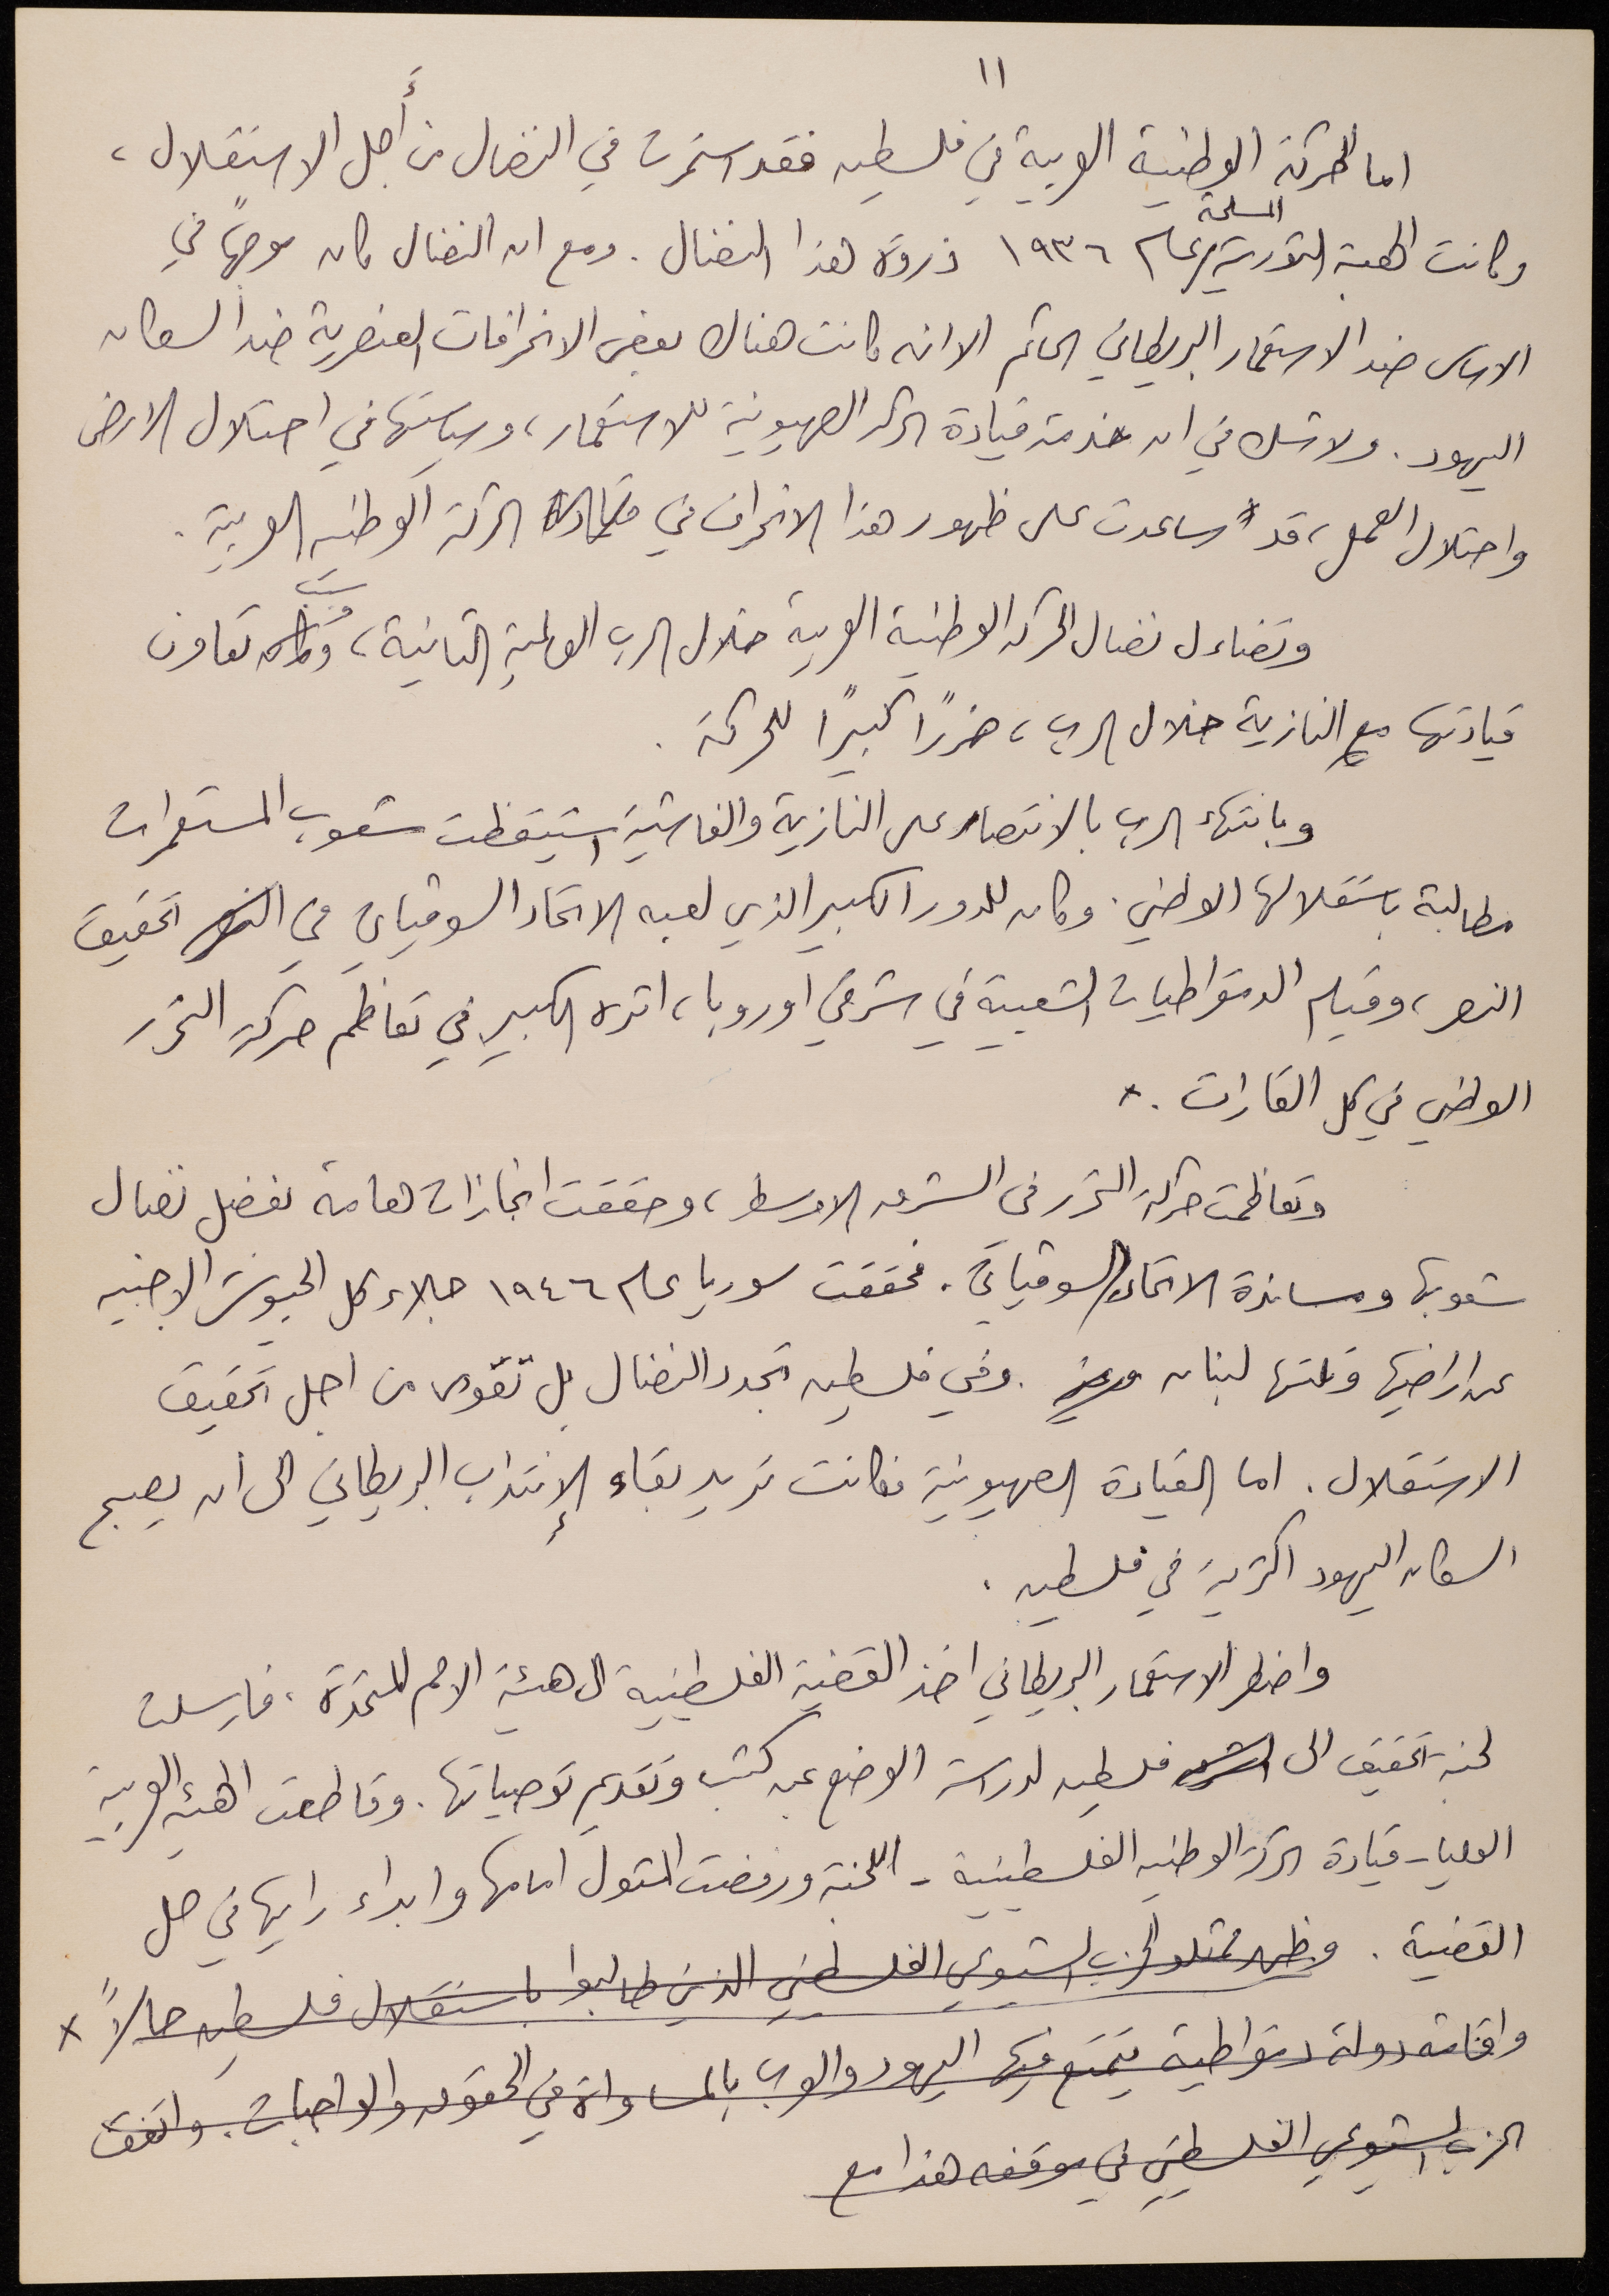 ١١
اما الحركة الوطنية العربية في فلسطين فقد استمرت في النضال من أجل الاستقلال ،
وكانت الهبة الثورية المسلحة عام ١٩٣٦ ذروة هذا النضال . ومع ان النضال كان موجهًا في
الاساس ضد الاستعمار البريطاني الحاكم الا انه كانت هناك بعض الانحرافات العنصرية ضد السكان
اليهود . ولا شك في ان خدمة قيادة الحركة الصهيونية للاستعمار ، وسياستها في احتلال الارض
واحتلال العمل ، قد ساعدت على ظهور هذا الانحراف في قيادة الحركة الوطنيه العربية .
وتضاءل نضال الحركة الوطنية العربية خلال الحرب العالمية الثانية ، وسبب تعاون
قيادتها مع النازية خلال الحرب ، ضررًا كبيرًا للحركة .
وبانتهاء الحرب بالانتصار على النازية والفاشية استيقظت شعوب المستعمرات
مطالبة باستقلالها الوطني . وكان للدور الكبير الذي لعبه الاتحاد السوفياتي في النصر تحقيق
النصر ، وقيام الدمقراطيات الشعبية في شرقي اوروبا ، اثره الكبير في تعاظم حركة التحرر
الوطني في كل القارات . x
وتعاظمت حركة التحرر في الشرق الاوسط ، وحققت انجازات هامة بفضل نضال
شعوبها ومساندة الاتحاد السوفياتي . فحققت سوريا عام ١٩٤٦ جلاء كل الجيوش الاجنبيه
عن اراضيها وتلتها لبنان . وفي فلسطين تجدد النضال بل تقوى من اجل تحقيق
الاستقلال . اما القيادة الصهيونية فكانت تريد بقاء الإنتداب البريطاني الى أن يصبح
السكان اليهود اكثرية في فلسطين .
واضطر الاستعمار البريطاني اخذ القضية الفلسطينية الى هيئة الامم المتحدة . فارسلت
لجنة تحقيق الى فلسطين لدراسة الوضع عن كثب وتقديم توصياتها . وقاطعت الهيئه العربية
العليا - قيادة الحركة الوطنيه الفلسطينية - اللجنة ورفضت المثول امامها وابداء رايها في حل
القضية . وظهر ممثلو الحزب الشيوعي الفلسطيني الذين طالبوا باستقلال فلسطين حالاً x
واقامة دولة دمقراطية يتمتع فيها اليهود والعرب بالمساواة في الحقوق والواجبات . واتفق
الحزب الشيوعي الفلسطيني في موقفه هذا مع